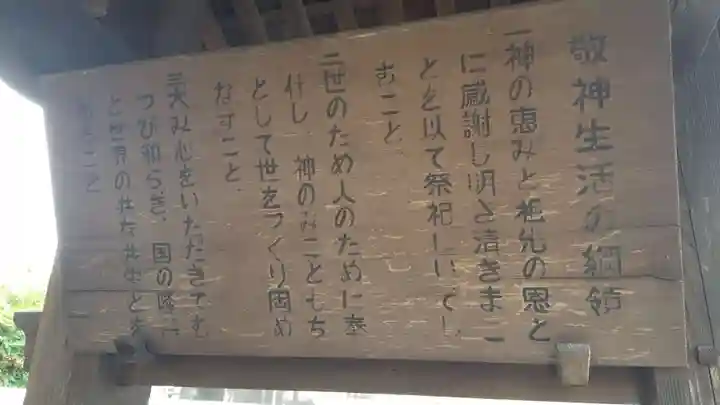 敬神生活の綱領
一神の恵みと祖先の恩と
に感謝し明き清きまこ
とを以て祭祀にいそし
むこと
二世のため人のために奉
仕し 神のみこともち
として世をつくり固め
なすこと
三大み心をいただきてむ
つび和らぎ、国の隆
と世界の共存共栄とを
こと